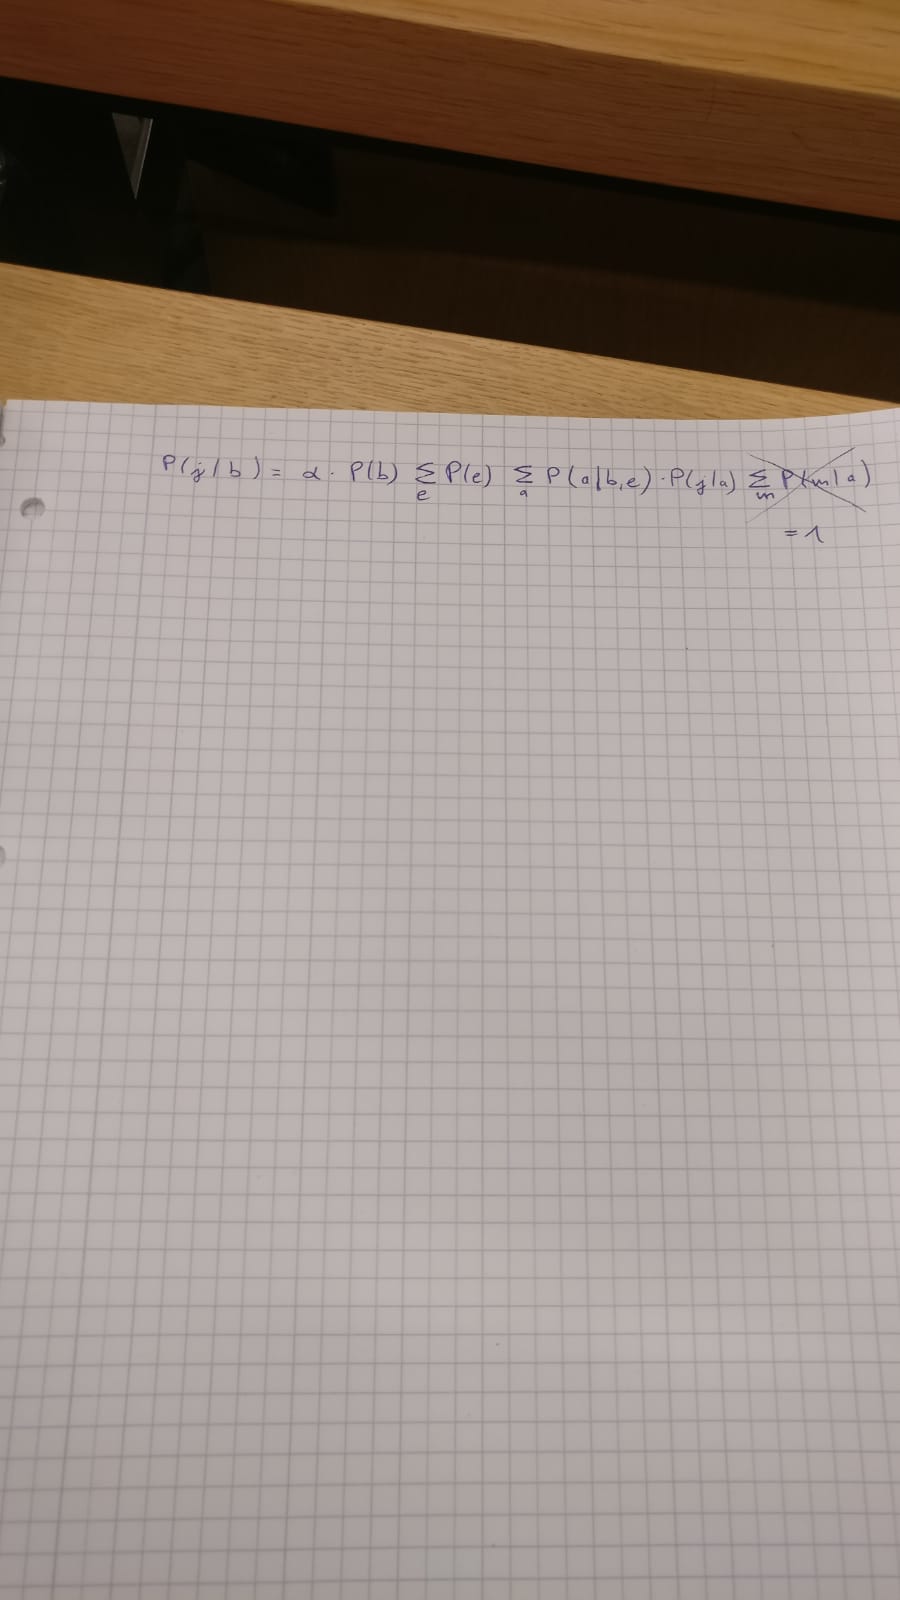 P(j|b) = α · P(b) Σ_e P(e) Σ_a P(a|b,e) · P(j|a) Σ_m P(m|a)
= 1